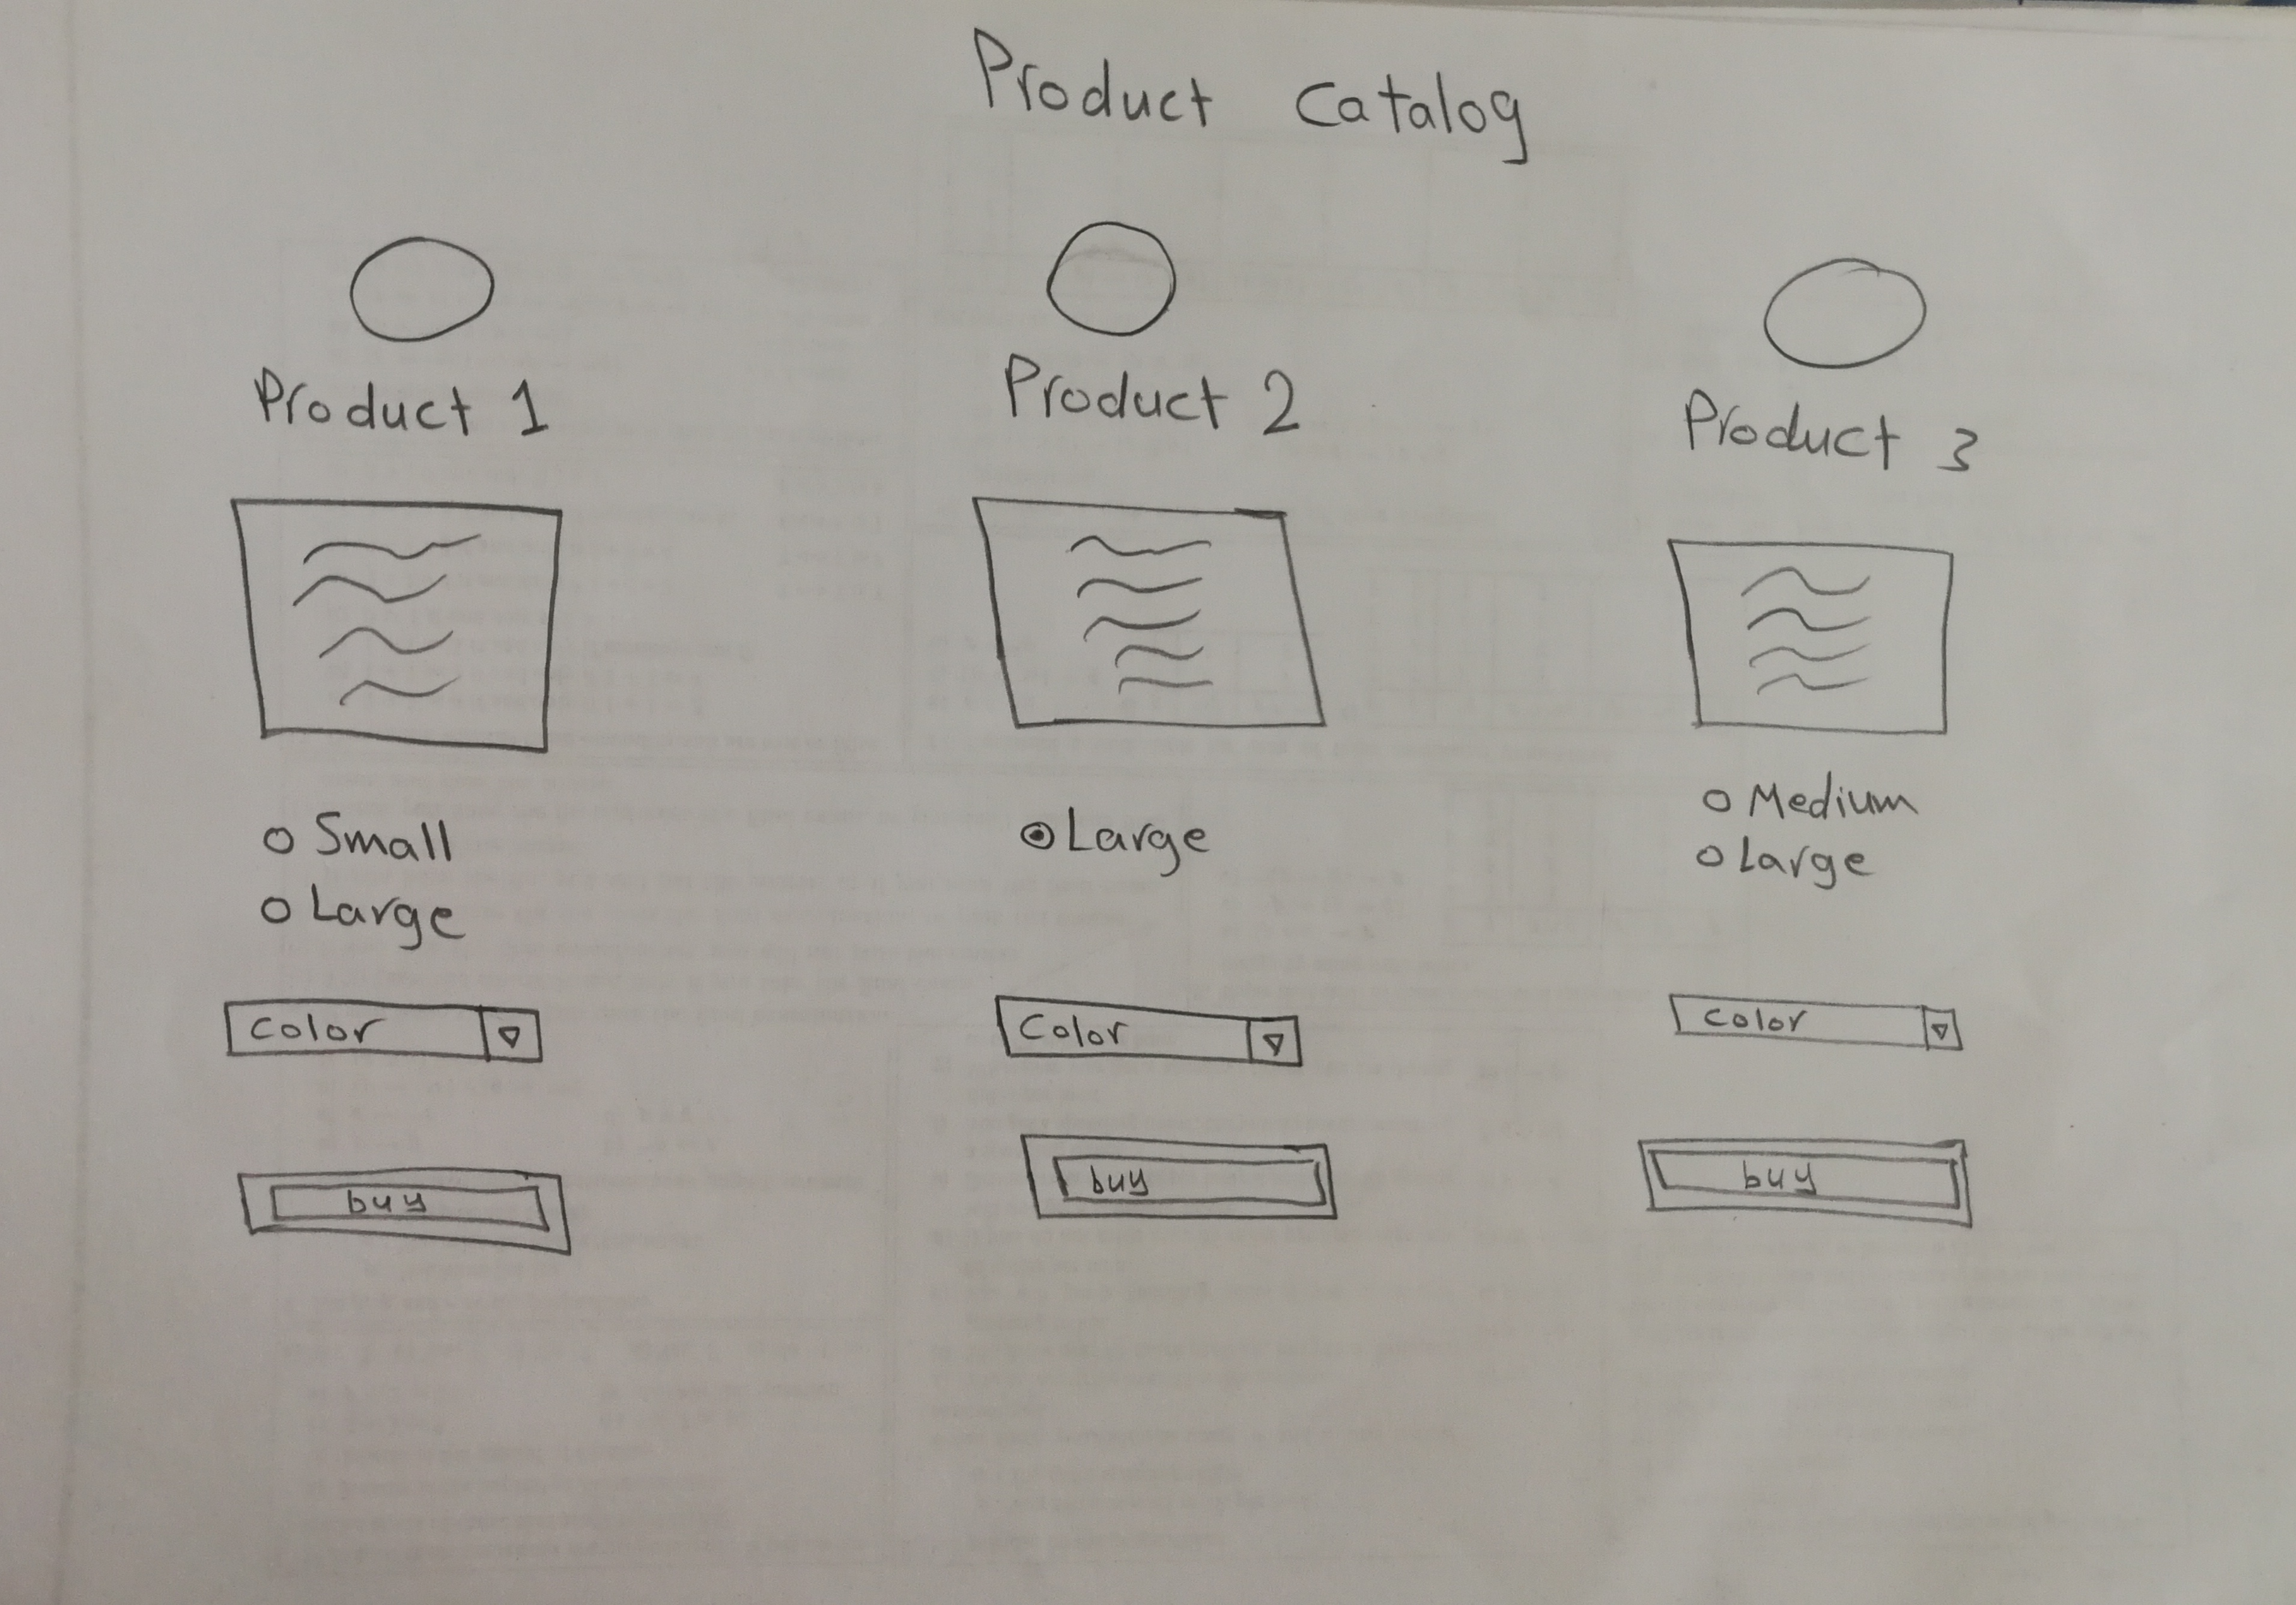 Product Catalog
Product 1
Small
Large
Color
buy
Product 2
Large
Color
buy
Product 3
Medium
Large
Color
buy